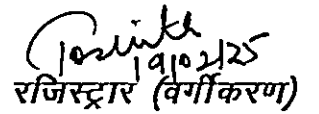 19/02/25
रजिस्ट्रार (वर्गीकरण)